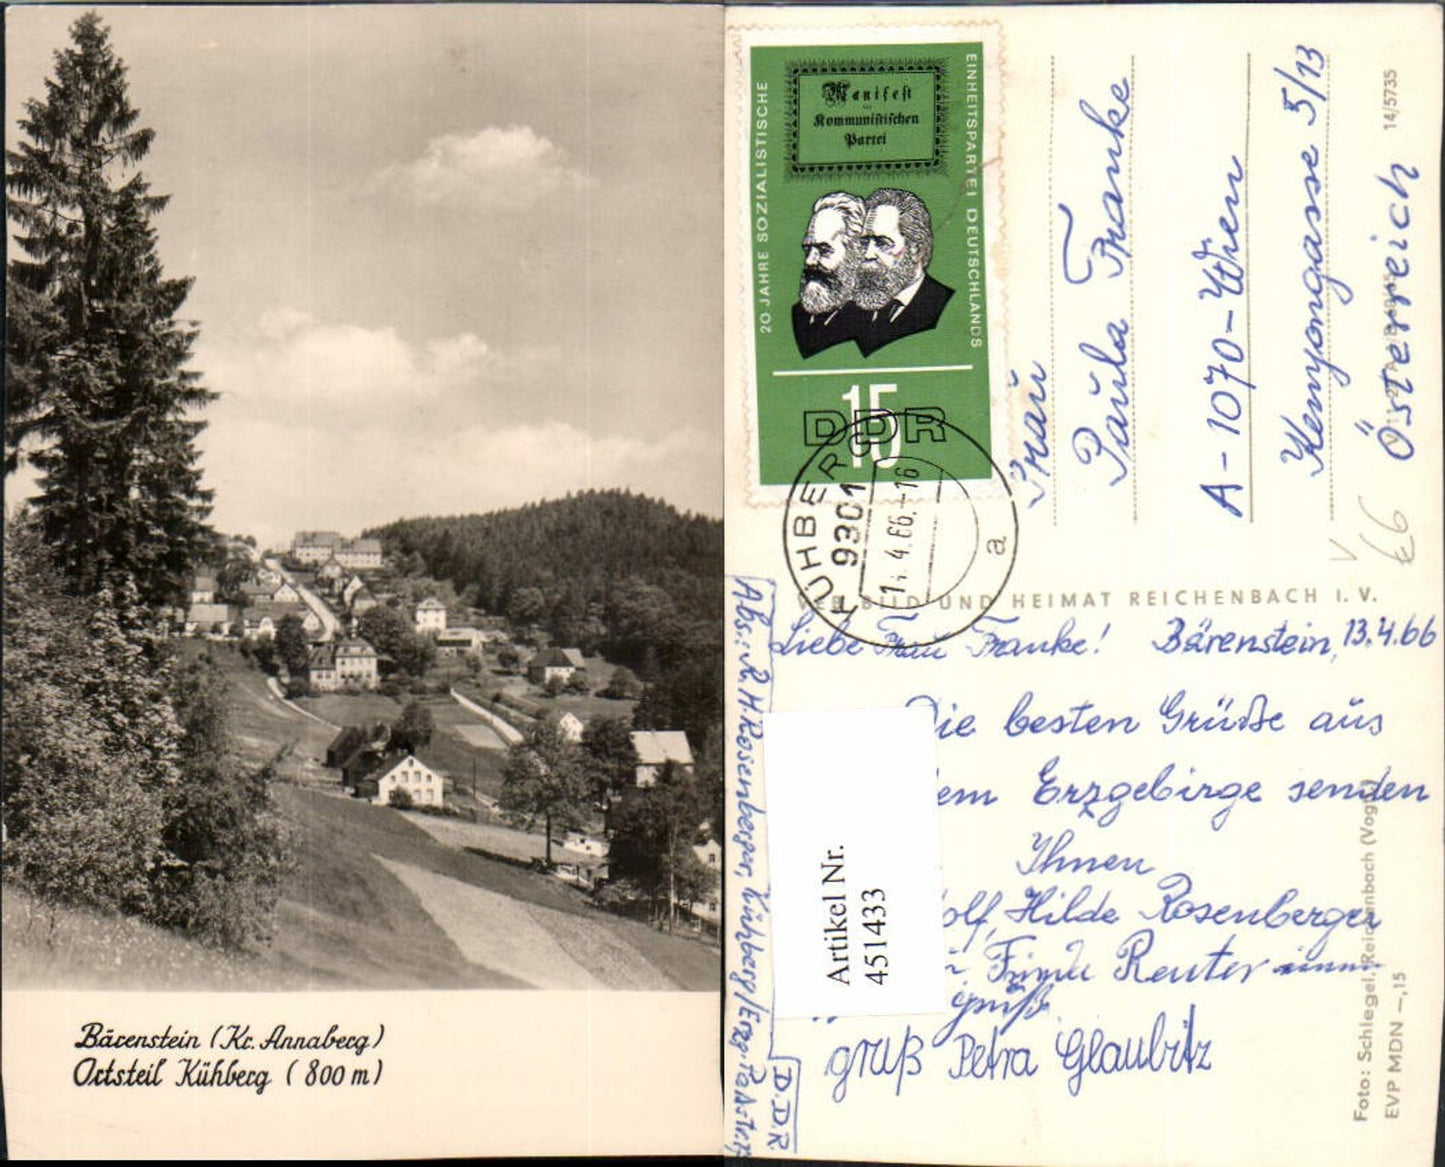 Bärenstein (Kr. Annaberg)
Ortsteil Kühberg (800 m)
20 JAHRE SOZIALISTISCHE
EINHEITSPARTEI DEUTSCHLANDS
Manifest
der
Kommunistischen
Partei
15
DDR
KÜHBERG
9301
14.4.66.-16
a
Frau
Paula Franke
A-1070-Wien
Kenyongasse 5/13
Österreich
14/5735
66
VEB BILD UND HEIMAT REICHENBACH I. V.
Liebe Frau Franke! Bärenstein, 13.4.66
Die besten Grüße aus
dem Erzgebirge senden
Ihnen
olf, Hilde Rosenberger
Reuter
gruß Petra Glaubitz
Abs.: R. H. Rosenberger, Kühberg/Erzg.
D.D.R.
Artikel Nr.
451433
Foto: Schlegel, Reichenbach (Vogtl.)
EVP MDN –,15